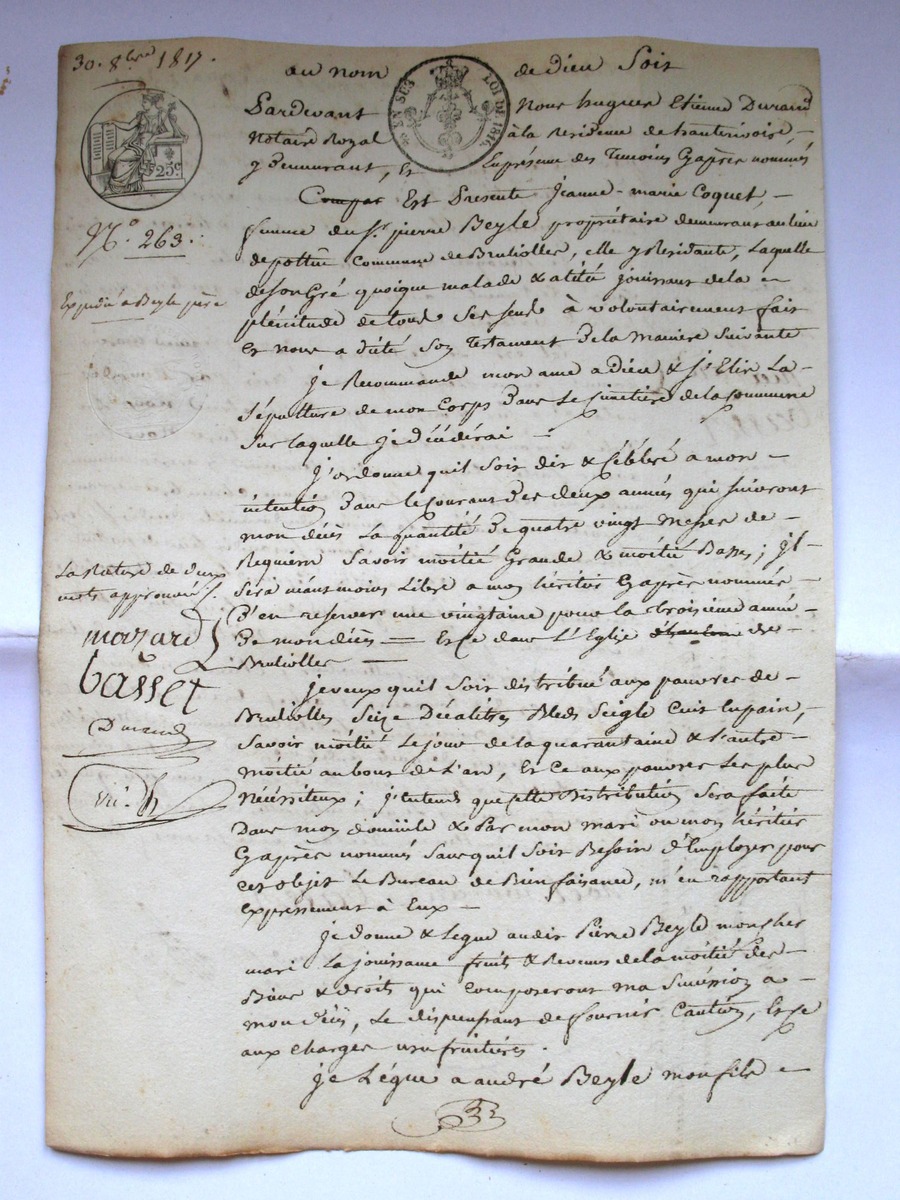 30. 8bre 1817.
au nom de Dieu Soit
EN SUS LOI DE 1816
25c
Pardevant Nous hugues Etienne Durand
Notaire Royal à la Residence de hauterivoire, –
y demeurant, et En présence des Temoins Cy après nommés
Compar Est Presente Jeanne-marie Coquet, –
femme du Sr. pierre Beyle propriétaire demeurant au lieu
N.o 263.
de commune de Brulliolles, elle y Residante, Laquelle
Expédié a Beyle père
de son Gré quoique malade & alitée jouissant de la –
plénitude de tous Ses Sens à volontairement fait
et nous a dicté Son Testament De la Maniere Suivante
je Recommande mon ame a Dieu & j'Elis La –
Sépulture de mon Corps Dans Le Cimetière de la Commune
Sur laquelle je décéderai –
j'ordonne quil Soit dit & Célébré a mon –
intention Dans le Courant Des deux années qui suivront
mon décès La quantité De quatre vingt Messes de –
Requiem Savoir moitié Grande & moitié Basses; il –
Sera néantmoins Libre a mon héritier Cy après nommé –
D'en reserver une vingtaine pour la troisième année –
De mon décès — Et Ce dans L'Eglise de –
Brulliolles —
La Rature de deux
mots approuvée /.
mazard
basset
Durand
je veux quil Soit distribué aux pauvres de –
Brulliolles Seize Décalitres Bled Seigle Cuit en pain, –
Savoir moitié Le jour de la quarantaine & l'autre –
Moitié au bout de L'an, Et Ce aux pauvres Les plus
Nécessiteux; j'entends que Cette Distribution Sera faite
Dans mon domicile & Par mon mari ou mon héritier
Cy après nommés Sans quil Soit Besoin d'Employer pour
Cet objet Le Bureau de Bienfaisance, m'en rapportant
expressement à Eux –
je donne & Legue audit Pierre Beyle mon cher
mari La jouissance fruits & Revenus de la moitié des –
Biens & droits qui Composeront ma Succession a –
mon décès, Le dispensant de fournir Caution, Et Ce
aux charges usufruitières.
je Lègue a andré Beyle mon fils –